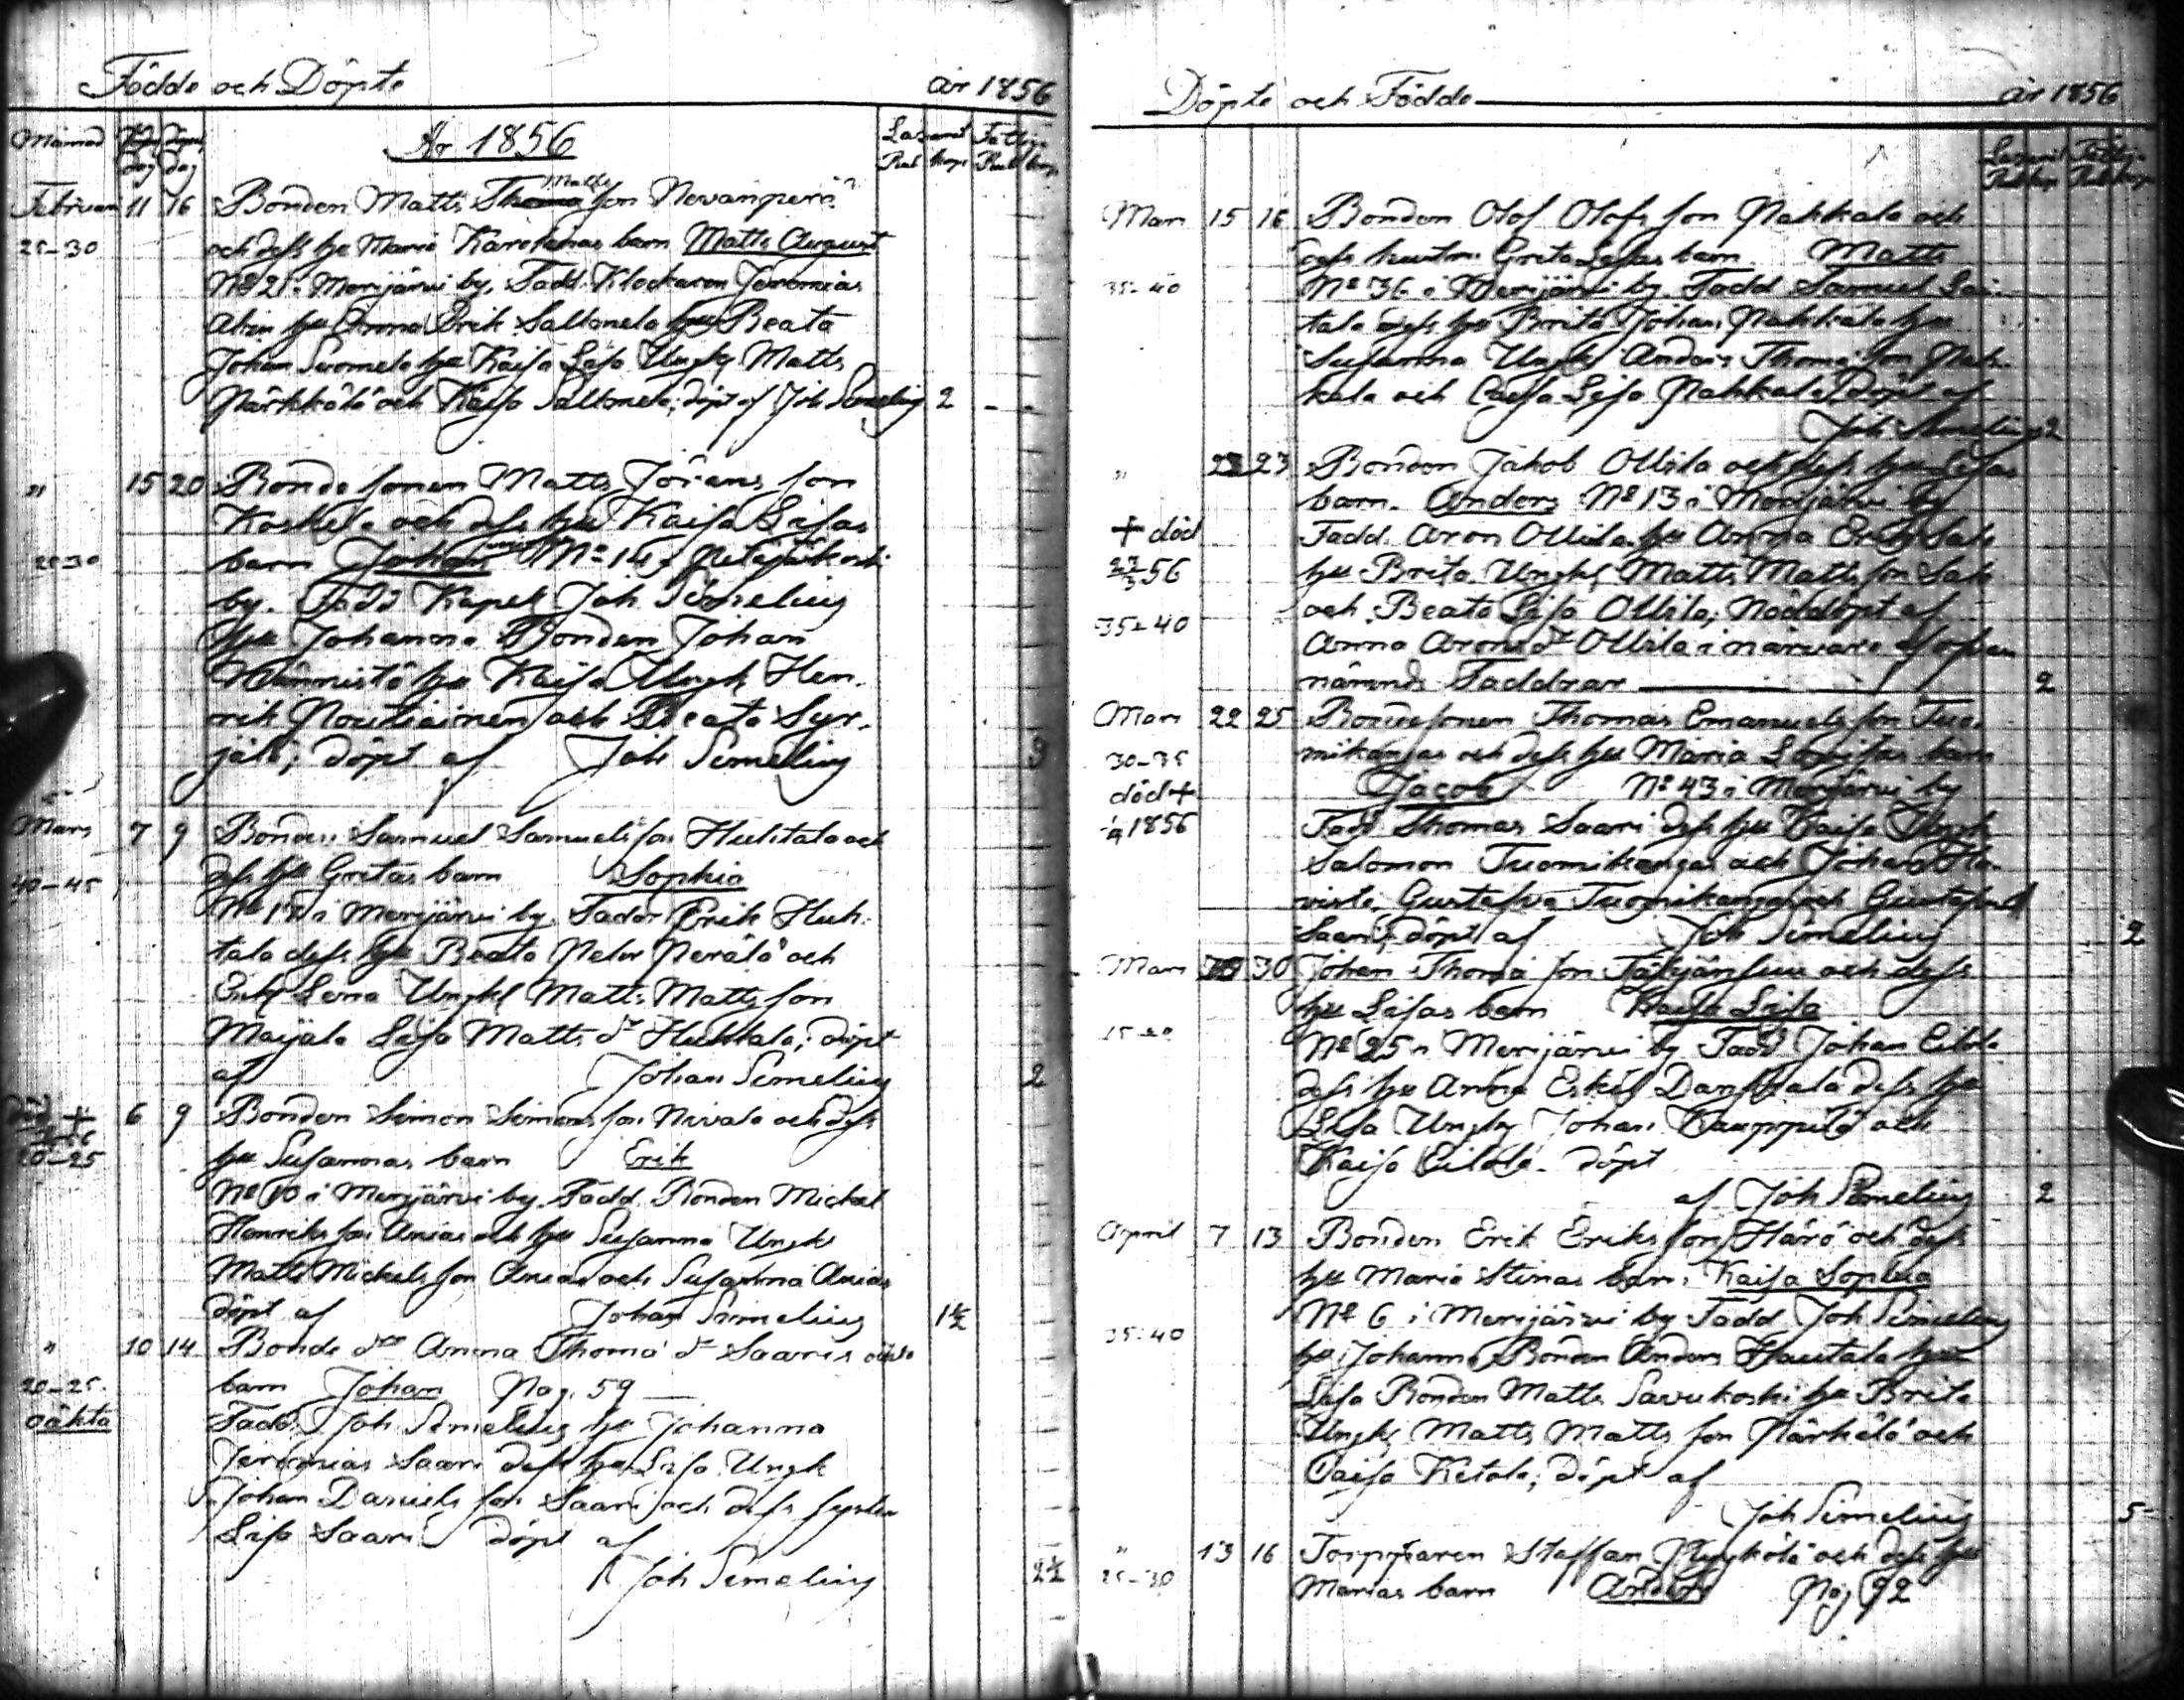 Födde och Döpte år 1856
Månad dag dag År 1856
Februari 11 16 Bonden Matts Thoma Matts son Nevanperä
25-30 och dess hu Maria Karolinas barn Matts August
No 21 i Merijärvi by, Fadd. Klockaren Jeremias
hu Anna Erik Saltonela hu Beata
Johan Suomela hu Kaisa Lisa Ungk Matts
Närkkölä och Kaisa döpt af Joh Simelius 2
" 15 20 Bonde sonen Matts Jörans son
Koskela och dess hu Kaisa Lisas
25-30 barn Johan No 14 i
by. Fadd Kapel Joh Simelius
hu Johanna Bonden Johan
Männistö hu Kaisa Ungk Hen-
rik Noutiainen och Beata Syr-
jälä; döpt af Joh Simelius 3
Mars 7 9 Bonden Samuel Samuels son Huhtala och
40-45 dess hu Gretas barn Sophia
No 17 i Merijärvi by. Fadd Erik Huh-
tala dess hu Beata Perälä och
Lena Ungk Matts Matts son
Maijala Lisa Matts dr Huhtala; döpt
af Johan Simelius 2
+ 6 9 Bonden Simon Simons son Nivala och dess
20-25 hu Susannas barn Erik
No 10 i Merijärvi by. Fadd. Bonden Mickel
Henriks son Anias och hu Susanna Ungk
Matts Mickels son Anias och Susanna Anias
döpt af Johan Simelius 1½
" 10 14 Bonde dr Anna Thoma dr Saaris oäkta
20-25. barn Johan Pag. 59
oäkta Fadd. Joh Simelius hu Johanna
Jeremias Saari dess hu Lisa Ungk
Johan Daniels son Saari och dess syster
Lisa Saari döpt af
Joh Simelius 2½
Döpte och Födde år 1856
Mars 15 16 Bonden Olof Olofs son Pahkala och
dess hustru Greta Lisas barn. Matts
35-40 No 36 i Merijärvi by Fadd Samuel Lai-
tala dess hu Brita Johan Pahkala hu
Susanna Ungk Anders Thoma son Pah-
kala och Caisa Lisa Pahkala döpt af
Joh Simelius 2
" 22 23 Bonden Jakob Ollila och dess hu Lisas
barn. Anders No 13 i Merijärvi by
+ död Fadd. Aron Ollila hu Anna Erik
27/3 56 hu Brita Ungk Matts Matts son
35-40 och Beata Lisa Ollila; Nöddöpt af
Anna Arons dr Ollila i närvaro af ofvan
nämnde Faddrar 2
Mars 22 25 Bondesonen Thomas Emanuels son Tuo-
30-35 mikangas och dess hu Maria Lovisas barn
död + Jacob No 43 i Merijärvi by
1856 Fadd Thomas Saari dess hu Kaisa Ungk
Salomon Tuomikangas och Johan
Gustafva Tuomikangas och Gustafva
Saari; döpt af Joh Simelius 2
Mars 30 Johan Thoma son och dess
hu Lisas barn Kaisa Lisa
15-20 No 25 i Merijärvi by Fadd Johan Eilola
dess hu Anna Eskil dess hu
Lisa Ungk Johan Kauppila och
Kaisa Eilola. döpt
af Joh Simelius 2
April 7 13 Bonden Erik Eriks son Härö och dess
hu Maria Stinas barn. Kaisa Sophia
35-40 No 6 i Merijärvi by Fadd Joh Simelius
hu Johanna Bonden Anders Hautala hu
Lisa Bonden Matts Savukoski hu Brita
Ungk Matts Matts son Närhilä och
Caisa Kitala; döpt af
Joh Simelius 5-
" 13 16 Torpparen Staffan och dess hu
25-30 Marias barn Anders Pag 92